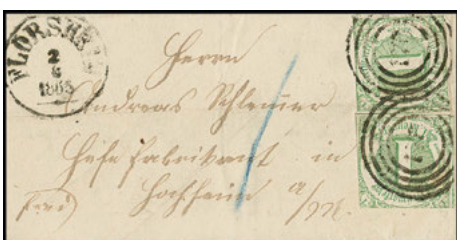 FLÖRSHEIM
2
6
1865
Herrn
Andreas Schleimer
Hefe Fabrikant in
Hochheim a/M.
frei
1
1